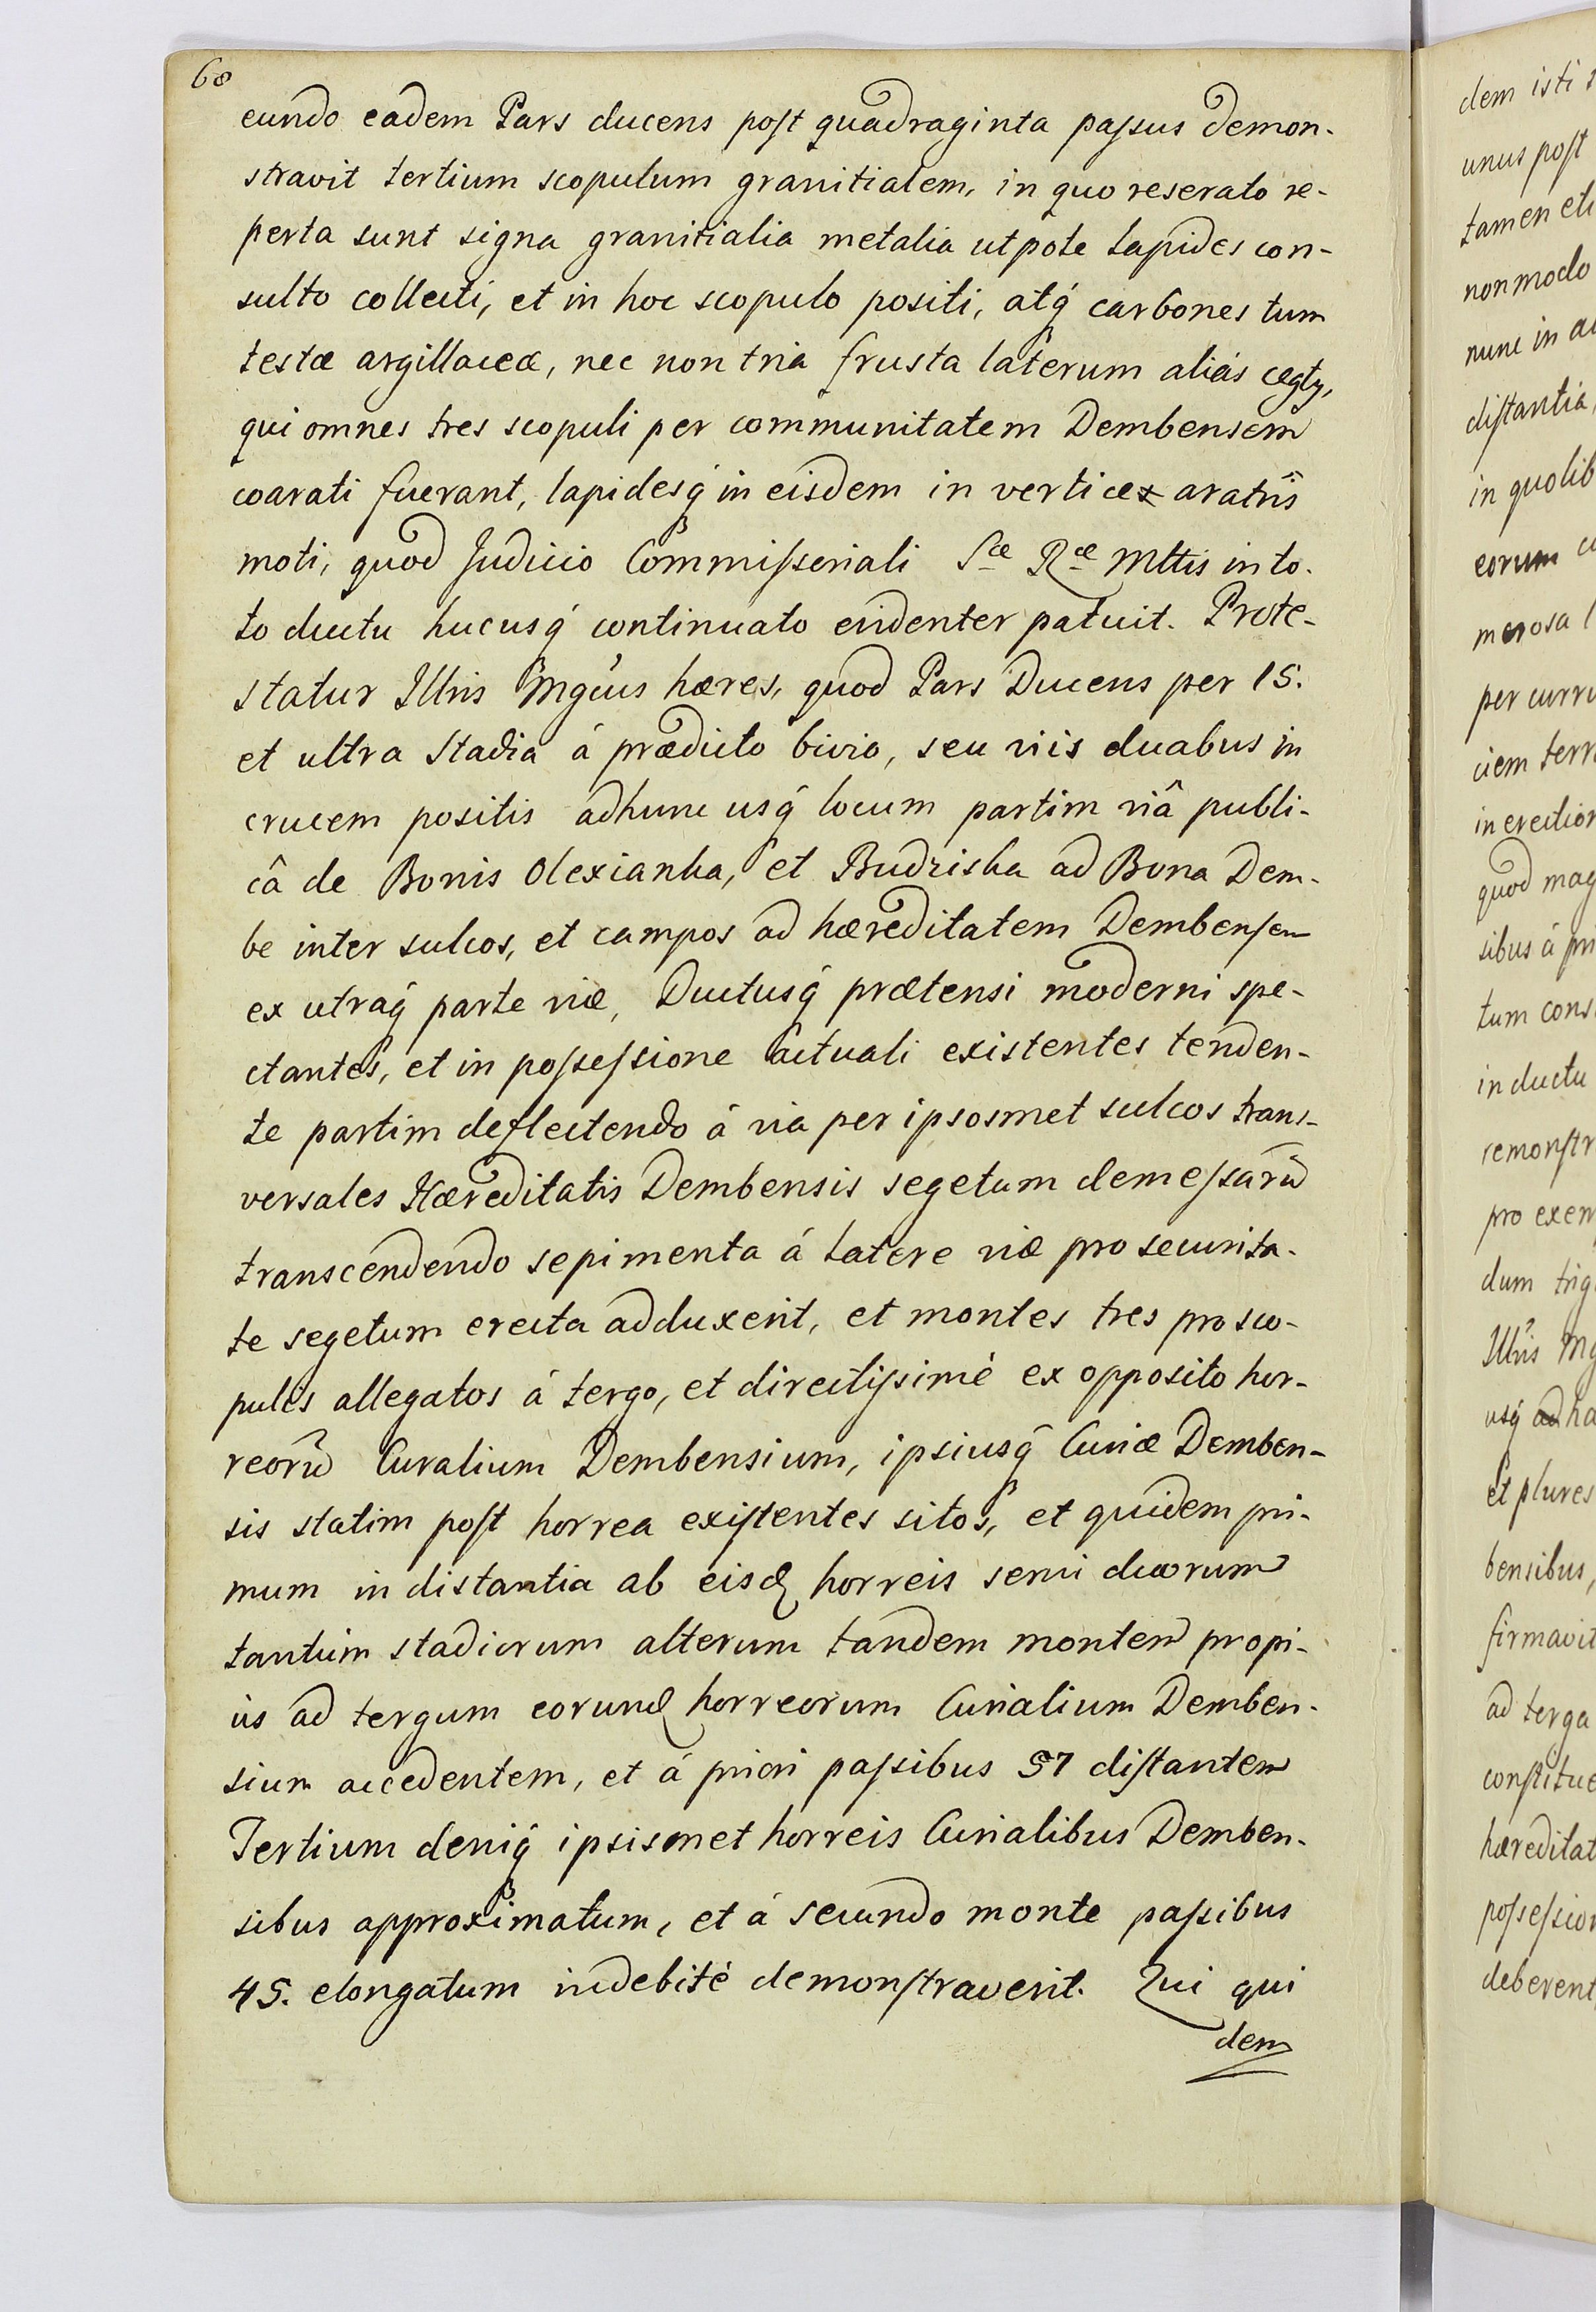 68
eundo eadem Pars ducens post quadraginta passus demon-
stravit tertium scopulum granitialem, in quo reserato re-
perta sunt signa granitialia metalia utpote lapides con-
sulto collecti, et in hoc scopulo positi, atq́ carbones tum
testæ argillaceæ, nec non tria frusta laterum aliás cegly,
qui omnes tres scopuli per communitatem Dembensem
coarati fuerant, lapidesq́ in eisdem in vertice aratris
moti, quod Judicio Commissoriali Sæ Ræ Mttis in to-
to ductu hucusq́ continuato evidenter patuit. Prote-
statur Illris Mgcus hæres, quod Pars Ducens per 15.
et ultra Stadia á prædicto bivio, seu viis duabus in
crucem positis adhunc usq́ locum partim viâ publi-
câ de Bonis Olexianka, et Budziska ad Bona Dem-
be inter sulcos, et campos ad hæreditatem Dembensem
ex utraq́ parte viæ, Ductusq́ prætensi moderni spe-
ctantes, et in possessione actuali existentes tenden-
te partim deflectendo á via per ipsosmet sulcos trans-
versales Hæreditatis Dembensis segetum demessarū
transcendendo sepimenta á latere viæ pro securita-
te segetum erecta adduxerit, et montes tres pro sco-
pulis allegatos á tergo, et directissimè ex opposito hor-
reorū Curalium Dembensium, ipsiusq́ Curiæ Demben-
sis statim post horrea existentes sitos, et quidem pri-
mum in distantia ab eisd horreis semi duorum
tantùm stadiorum alterum tandem montem propi-
us ad tergum eorund horreorum Curialium Demben-
sium accedentem, et á priori passibus 57 distantem
Tertium deniq́ ipsismet horreis Curialibus Demben-
sibus approximatum, et á secundo monte passibus
45. elongatum indebitè demonstraverit. Qui qui
dem
dem isti
unus post
tamen eti
non modo
nunc in
distantia,
in quolib
eorum
merosa
per curru
ciem terr
in erection
quod mag
sibus á pri
tum cons
in ductu
remonstr
pro exem
dum trig
Illris Mg
usq́ ha
et plures
bensibus,
firmavit
ad terga
constitue
hæreditat
possession
deberent